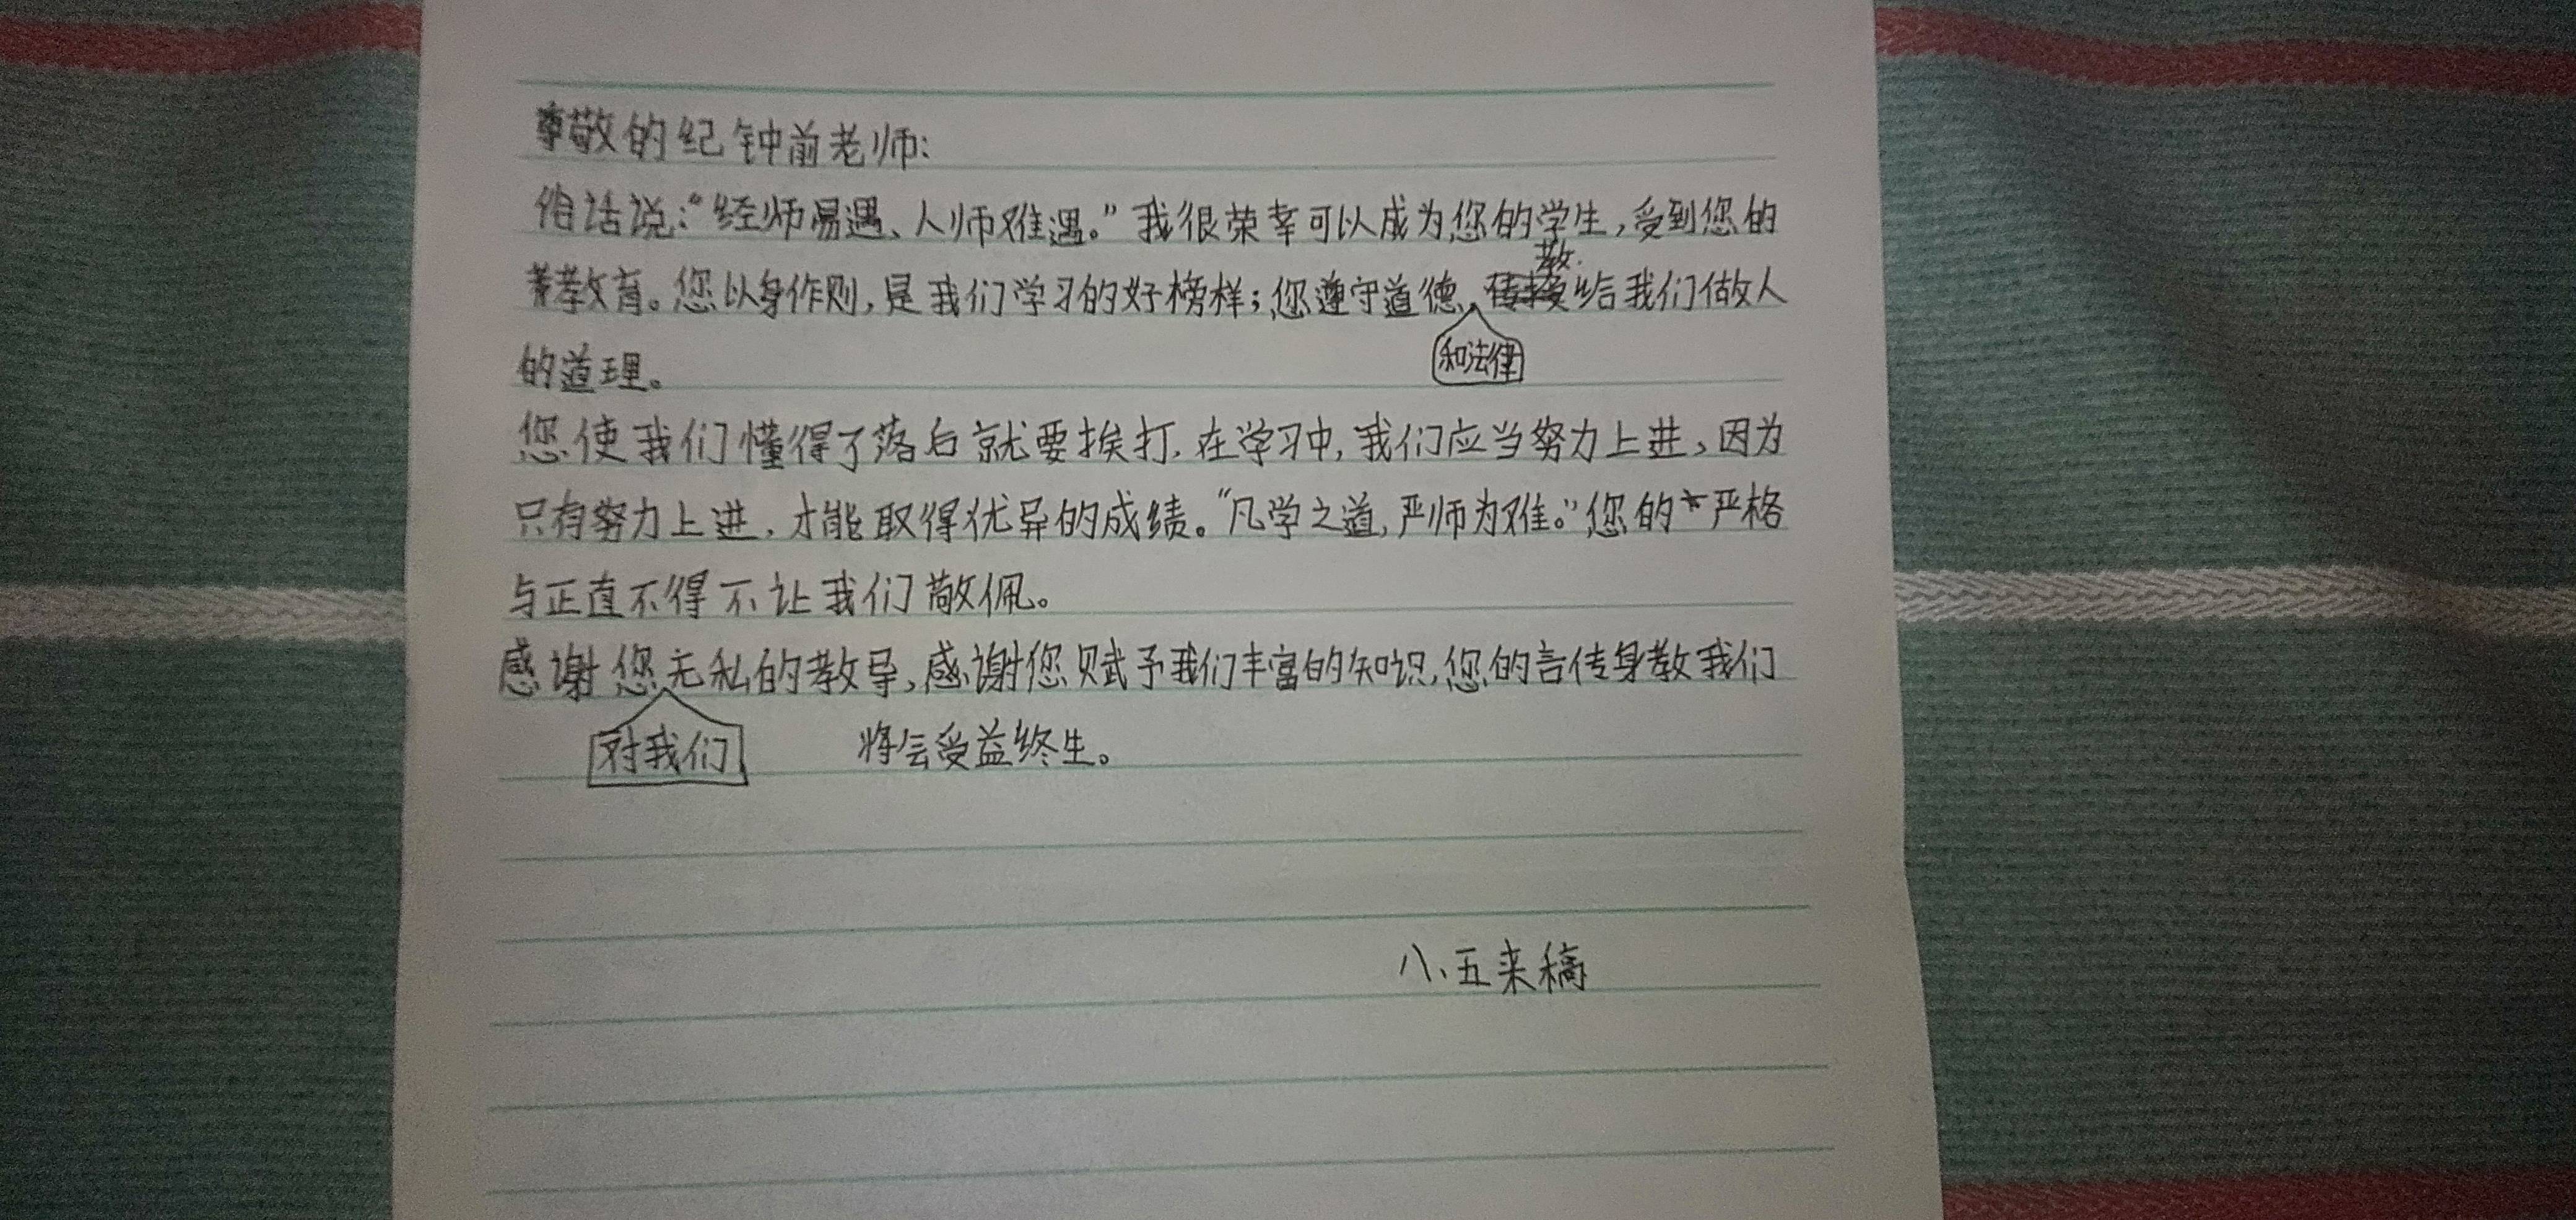 尊敬的纪钟前老师:
俗话说:“经师易遇、人师难遇。”我很荣幸可以成为您的学生,受到您的
教
教育。您以身作则,是我们学习的好榜样;您遵守道德,传授给我们做人
和法律
的道理。
您使我们懂得了落后就要挨打.在学习中,我们应当努力上进,因为
只有努力上进,才能取得优异的成绩。“凡学之道,严师为难。”您的严格
与正直不得不让我们敬佩。
感谢您无私的教导,感谢您赋予我们丰富的知识,您的言传身教我们
对我们 将会受益终生。
八、五来稿